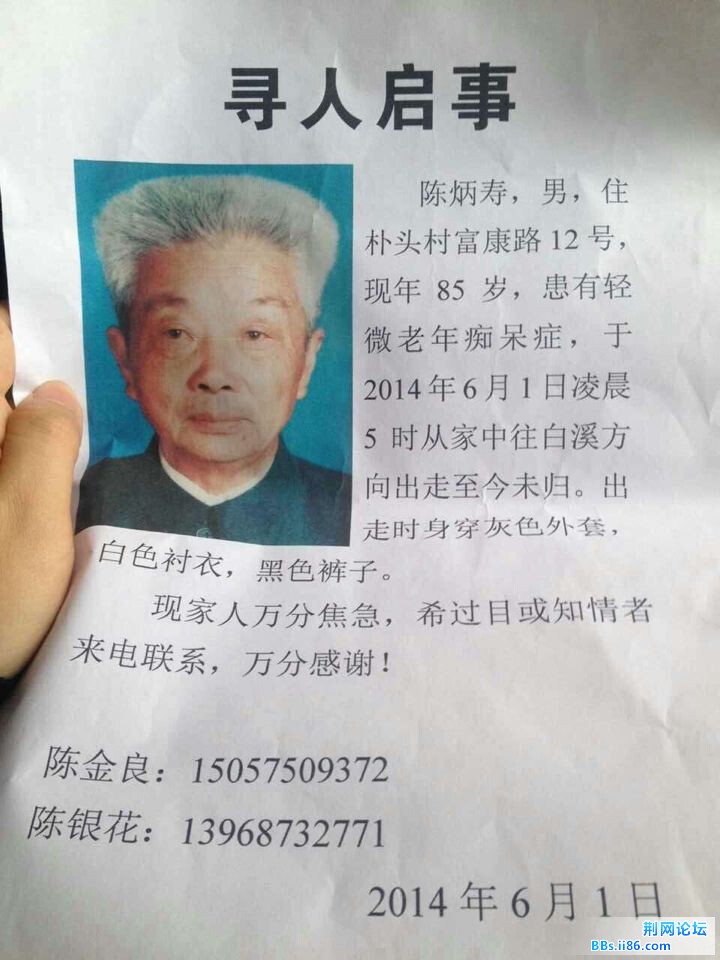 寻人启事
陈炳寿，男，住
朴头村富康路 12 号，
现年 85 岁，患有轻
微老年痴呆症，于
2014 年 6 月 1 日凌晨
5 时从家中往白溪方
向出走至今未归。出
走时身穿灰色外套，
白色衬衣，黑色裤子。
现家人万分焦急，希过目或知情者
来电联系，万分感谢！
陈金良：15057509372
陈银花：13968732771
2014 年 6 月 1 日
荆网论坛
BBs.ii86.com